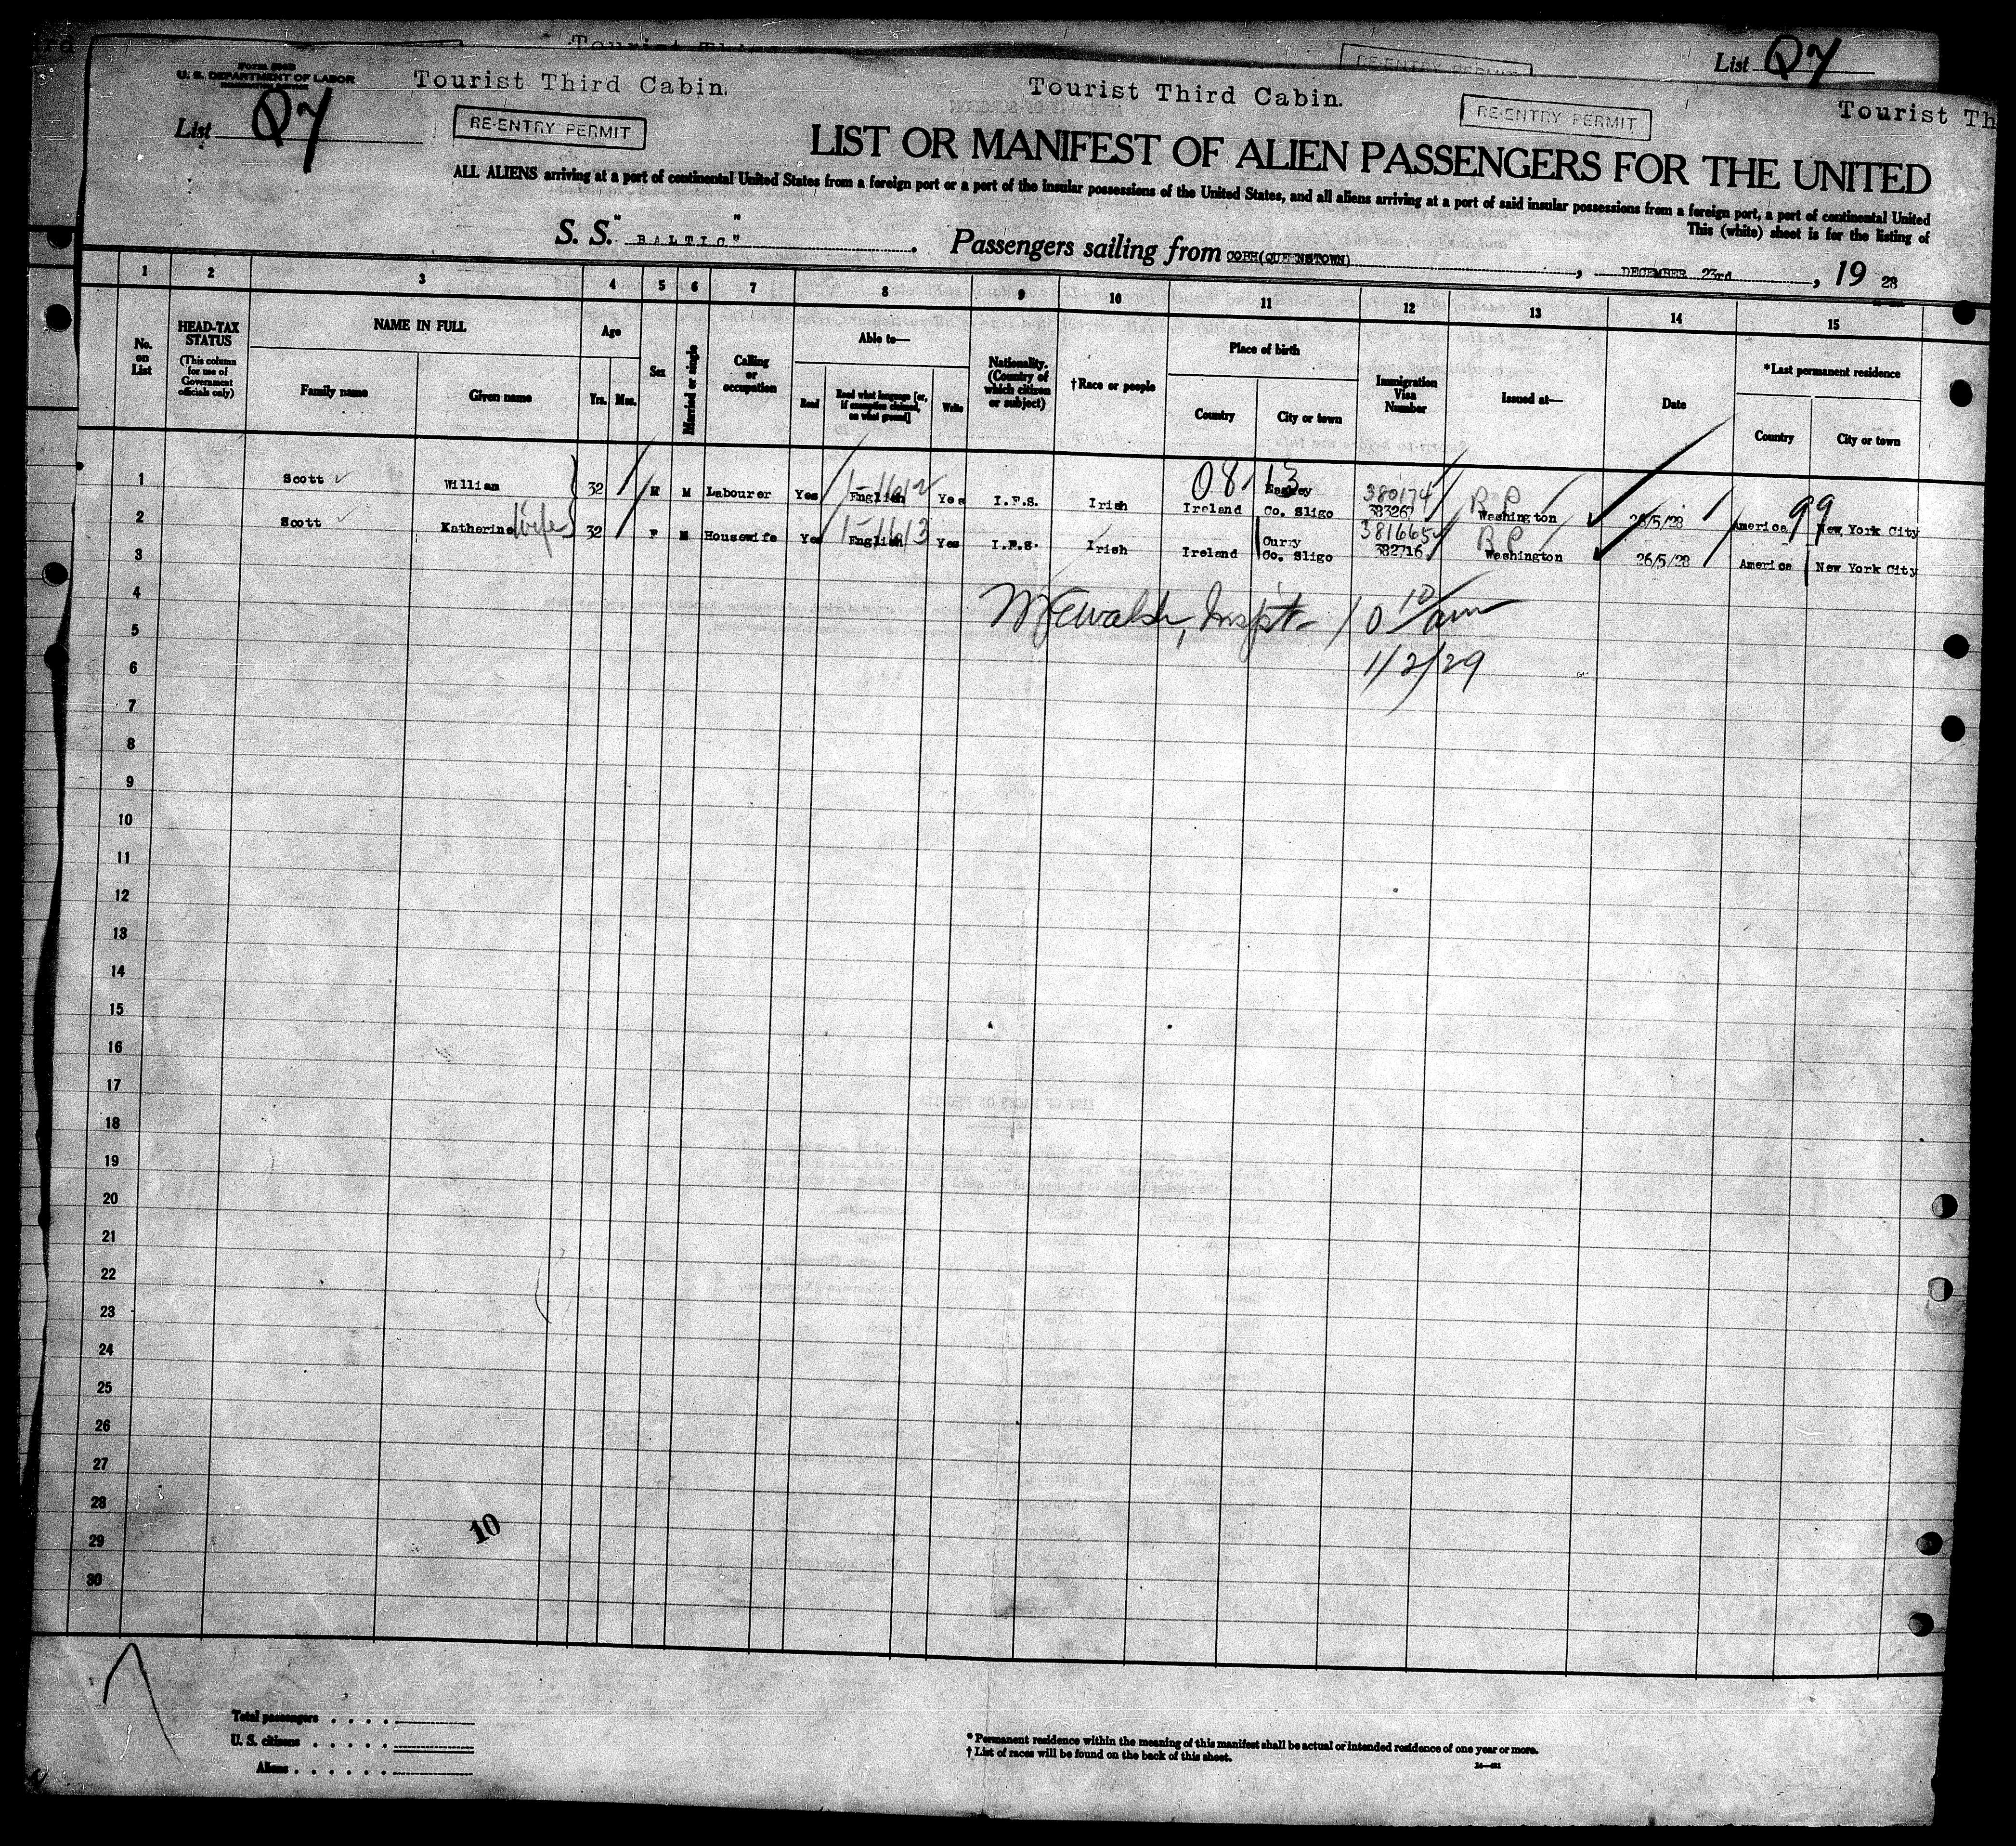 Tourist Third
List Q7
Form 500B
U. S. DEPARTMENT OF LABOR
IMMIGRATION SERVICE
Tourist Third Cabin.
Tourist Third Cabin.
Tourist Th
List Q7
RE-ENTRY PERMIT
RE-ENTRY PERMIT
RE-ENTRY PERMIT
LIST OR MANIFEST OF ALIEN PASSENGERS FOR THE UNITED
ALL ALIENS arriving at a port of continental United States from a foreign port or a port of the insular possessions of the United States, and all aliens arriving at a port of said insular possessions from a foreign port, a port of continental United
This (white) sheet is for the listing of
S. S. "BALTIC". Passengers sailing from COBH(QUEENSTOWN), DECEMBER 23rd, 19 28
1 2 3 4 5 6 7 8 9 10 11 12 13 14 15
No. on List
HEAD-TAX STATUS
(This column for use of Government officials only)
NAME IN FULL
Family name
Given name
Age
Yrs.
Mos.
Sex
Married or single
Calling or occupation
Able to—
Read
Read what language [or, if exemption claimed, on what ground]
Write
Nationality. (Country of which citizen or subject)
†Race or people
Place of birth
Country
City or town
Immigration Visa Number
Issued at—
Date
*Last permanent residence
Country
City or town
08 13
1 Scott William 32 M M Labourer Yes English Yes I.F.S. Irish Ireland Easkey Co. Sligo 380174 383267 R P Washington 26/5/28 America 99 New York City
2 Scott Katherine wife 32 F M Housewife Yes English Yes I.F.S. Irish Ireland Curry Co. Sligo 381665 382716 R P Washington 26/5/28 America New York City
3
4
5
6
7
8
9
10
11
12
13
14
15
16
17
18
19
20
21
22
23
24
25
26
27
28
29
30
Inspt- 10 10/am
1/2/29
10
Total passengers
U. S. citizens
Aliens
* Permanent residence within the meaning of this manifest shall be actual or intended residence of one year or more.
† List of races will be found on the back of this sheet.